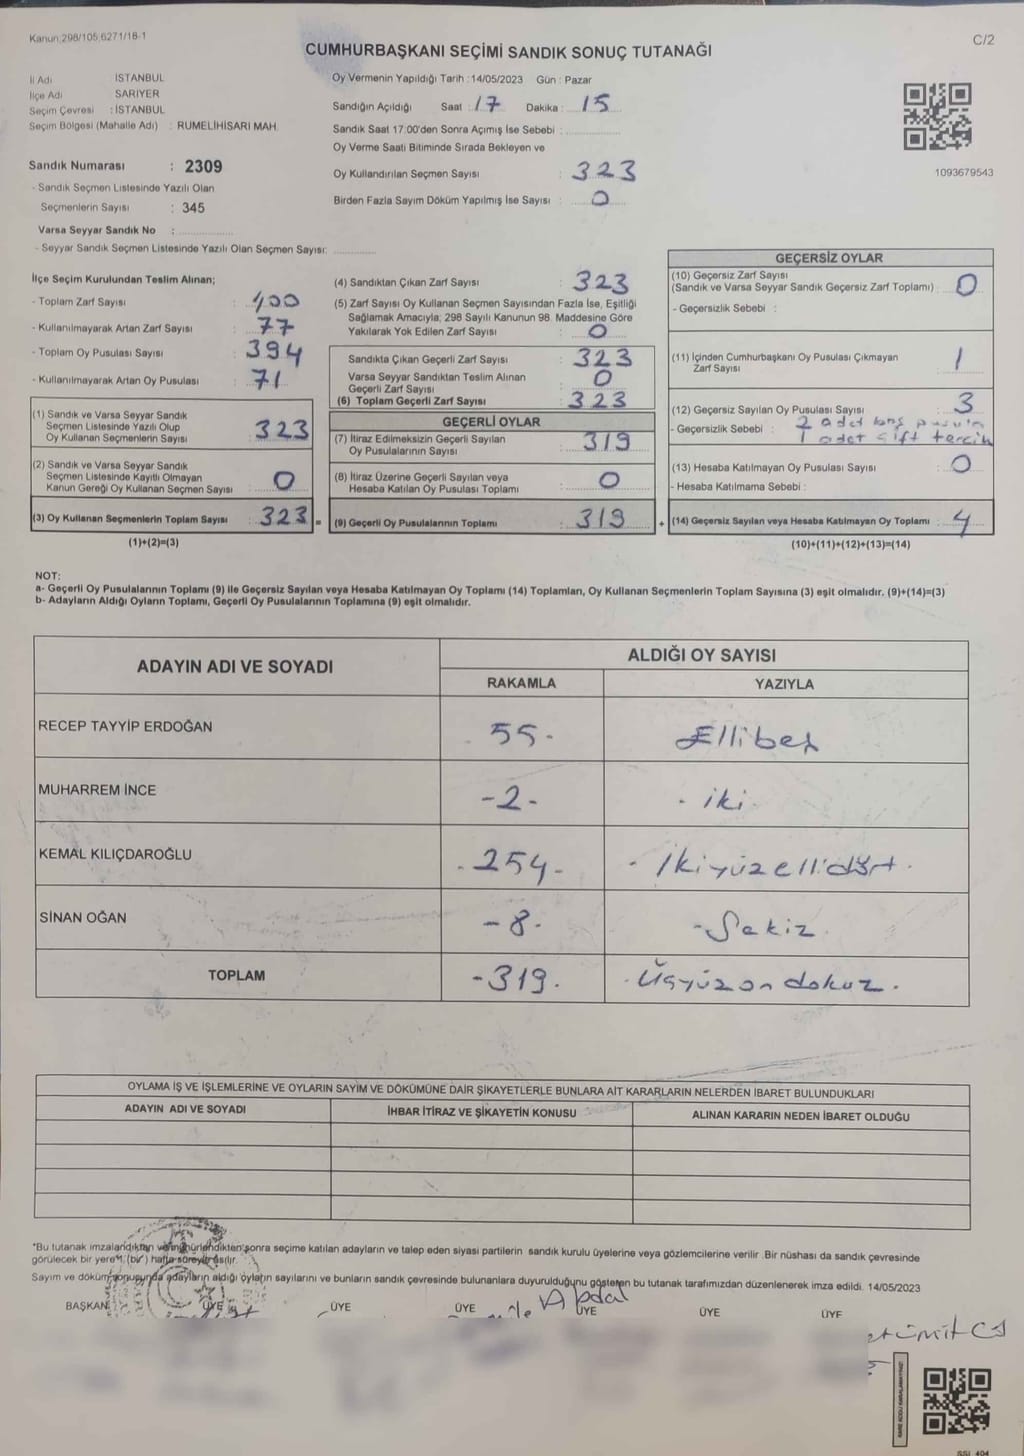 Kanun:298/105,6271/18-1
C/2
CUMHURBAŞKANI SEÇİMİ SANDIK SONUÇ TUTANAĞI
İl Adı İSTANBUL
İlçe Adı SARIYER
Seçim Çevresi : İSTANBUL
Seçim Bölgesi (Mahalle Adı) : RUMELİHİSARI MAH.
Sandık Numarası : 2309
- Sandık Seçmen Listesinde Yazılı Olan
Seçmenlerin Sayısı : 345
Varsa Seyyar Sandık No :
- Seyyar Sandık Seçmen Listesinde Yazılı Olan Seçmen Sayısı:
Oy Vermenin Yapıldığı Tarih : 14/05/2023 Gün : Pazar
Sandığın Açıldığı Saat : 17 Dakika : 15
Sandık Saat 17:00'den Sonra Açımış İse Sebebi :
Oy Verme Saati Bitiminde Sırada Bekleyen ve
Oy Kullandırılan Seçmen Sayısı : 323
Birden Fazla Sayım Döküm Yapılmış İse Sayısı : 0
1093679543
İlçe Seçim Kurulundan Teslim Alınan;
- Toplam Zarf Sayısı : 400
- Kullanılmayarak Artan Zarf Sayısı : 77
- Toplam Oy Pusulası Sayısı : 394
- Kullanılmayarak Artan Oy Pusulası : 71
(1) Sandık ve Varsa Seyyar Sandık
Seçmen Listesinde Yazılı Olup
Oy Kullanan Seçmenlerin Sayısı : 323
(2) Sandık ve Varsa Seyyar Sandık
Seçmen Listesinde Kayıtlı Olmayan
Kanun Gereği Oy Kullanan Seçmen Sayısı : 0
(3) Oy Kullanan Seçmenlerin Toplam Sayısı : 323 =
(1)+(2)=(3)
(4) Sandıktan Çıkan Zarf Sayısı : 323
(5) Zarf Sayısı Oy Kullanan Seçmen Sayısından Fazla İse, Eşitliği
Sağlamak Amacıyla; 298 Sayılı Kanunun 98. Maddesine Göre
Yakılarak Yok Edilen Zarf Sayısı : 0
Sandıkta Çıkan Geçerli Zarf Sayısı : 323
Varsa Seyyar Sandıktan Teslim Alınan
Geçerli Zarf Sayısı : 0
(6) Toplam Geçerli Zarf Sayısı : 323
GEÇERLİ OYLAR
(7) İtiraz Edilmeksizin Geçerli Sayılan
Oy Pusulalarının Sayısı : 319
(8) İtiraz Üzerine Geçerli Sayılan veya
Hesaba Katılan Oy Pusulası Toplamı : 0
(9) Geçerli Oy Pusulalarının Toplamı : 319 +
GEÇERSİZ OYLAR
(10) Geçersiz Zarf Sayısı
(Sandık ve Varsa Seyyar Sandık Geçersiz Zarf Toplamı) : 0
- Geçersizlik Sebebi :
(11) İçinden Cumhurbaşkanı Oy Pusulası Çıkmayan
Zarf Sayısı : 1
(12) Geçersiz Sayılan Oy Pusulası Sayısı : 3
- Geçersizlik Sebebi : 2 adet boş pusula
1 adet çift tercih
(13) Hesaba Katılmayan Oy Pusulası Sayısı : 0
- Hesaba Katılmama Sebebi :
(14) Geçersiz Sayılan veya Hesaba Katılmayan Oy Toplamı : 4
(10)+(11)+(12)+(13)=(14)
NOT:
a- Geçerli Oy Pusulalarının Toplamı (9) ile Geçersiz Sayılan veya Hesaba Katılmayan Oy Toplamı (14) Toplamları, Oy Kullanan Seçmenlerin Toplam Sayısına (3) eşit olmalıdır. (9)+(14)=(3)
b- Adayların Aldığı Oyların Toplamı, Geçerli Oy Pusulalarının Toplamına (9) eşit olmalıdır.
ADAYIN ADI VE SOYADI ALDIĞI OY SAYISI
RAKAMLA YAZIYLA
RECEP TAYYİP ERDOĞAN 55- Ellibeş
MUHARREM İNCE -2- - iki
KEMAL KILIÇDAROĞLU -254- - İkiyüzellidört -
SİNAN OĞAN -8- -Sekiz
TOPLAM -319- - Üçyüzondokuz -
OYLAMA İŞ VE İŞLEMLERİNE VE OYLARIN SAYIM VE DÖKÜMÜNE DAİR ŞİKAYETLERLE BUNLARA AİT KARARLARIN NELERDEN İBARET BULUNDUKLARI
ADAYIN ADI VE SOYADI İHBAR İTİRAZ VE ŞİKAYETİN KONUSU ALINAN KARARIN NEDEN İBARET OLDUĞU
*Bu tutanak imzalandıktan ve mühürlendikten sonra seçime katılan adayların ve talep eden siyasi partilerin sandık kurulu üyelerine veya gözlemcilerine verilir. Bir nüshası da sandık çevresinde
görülecek bir yere 1 (bir) hafta süreyle asılır.
Sayım ve döküm sonucunda adayların aldığı oyların sayılarını ve bunların sandık çevresinde bulunanlara duyurulduğunu gösteren bu tutanak tarafımızdan düzenlenerek imza edildi. 14/05/2023
BAŞKAN ÜYE ÜYE ÜYE ÜYE ÜYE ÜYE
Abdal
SSI 404